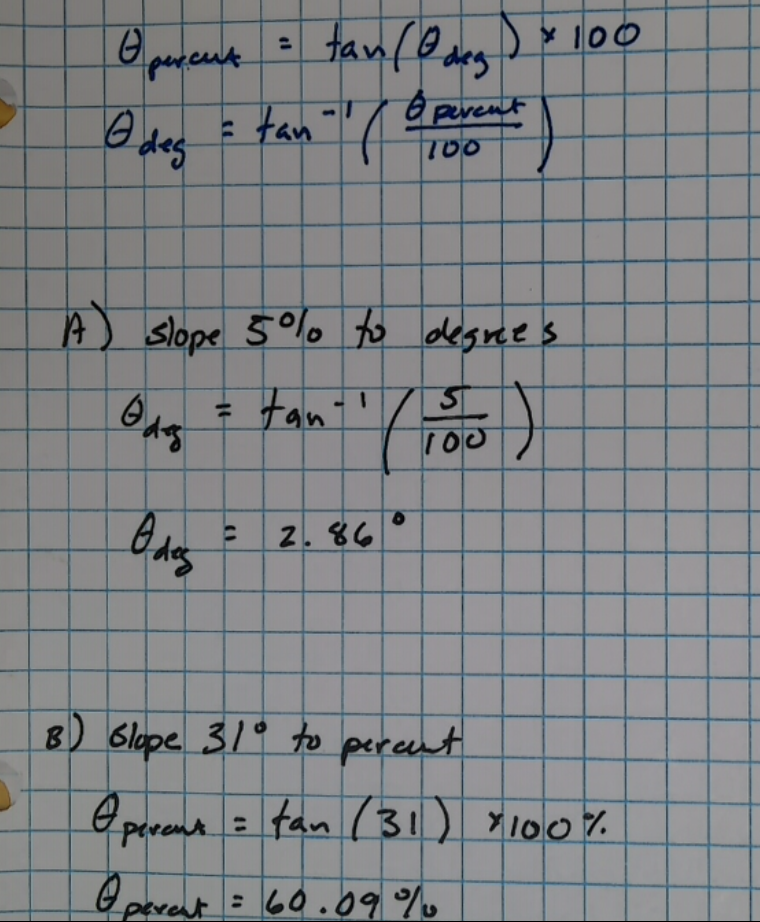 θpercent = tan(θdeg) × 100
θdeg = tan⁻¹(θpercent/100)
A) slope 5% to degrees
θdeg = tan⁻¹(5/100)
θdeg = 2.86°
B) slope 31° to percent
θpercent = tan(31) ×100%
θpercent = 60.09%